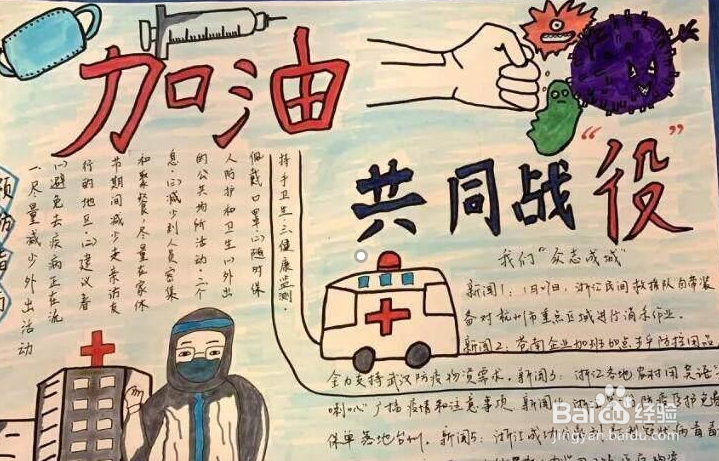 加油
共同战“役”
预防措
一、尽量减少外出活动
(1)避免去疾病正在流
行的地区。(2)建议春
节期间减少走亲访友
和聚餐,尽量在家休
息。(3)减少到人员密集
的公共场所活动。二、个
人防护和卫生(1)外出
佩戴口罩(2)随时保
持手卫生三、健康监测。
我们“众志成城”
新闻1:1月21日,浙江民间救援队自带装
备对杭州市重点区域进行消杀作业。
新闻2、苍南企业加班加点生产防控用品
全力支持武汉防疫物资需求。新闻3:浙江各地农村用
喇叭广播疫情和注意事项
保单落地台州。新闻5:浙江成功
Baidu百度经验
jingyan.baidu.com